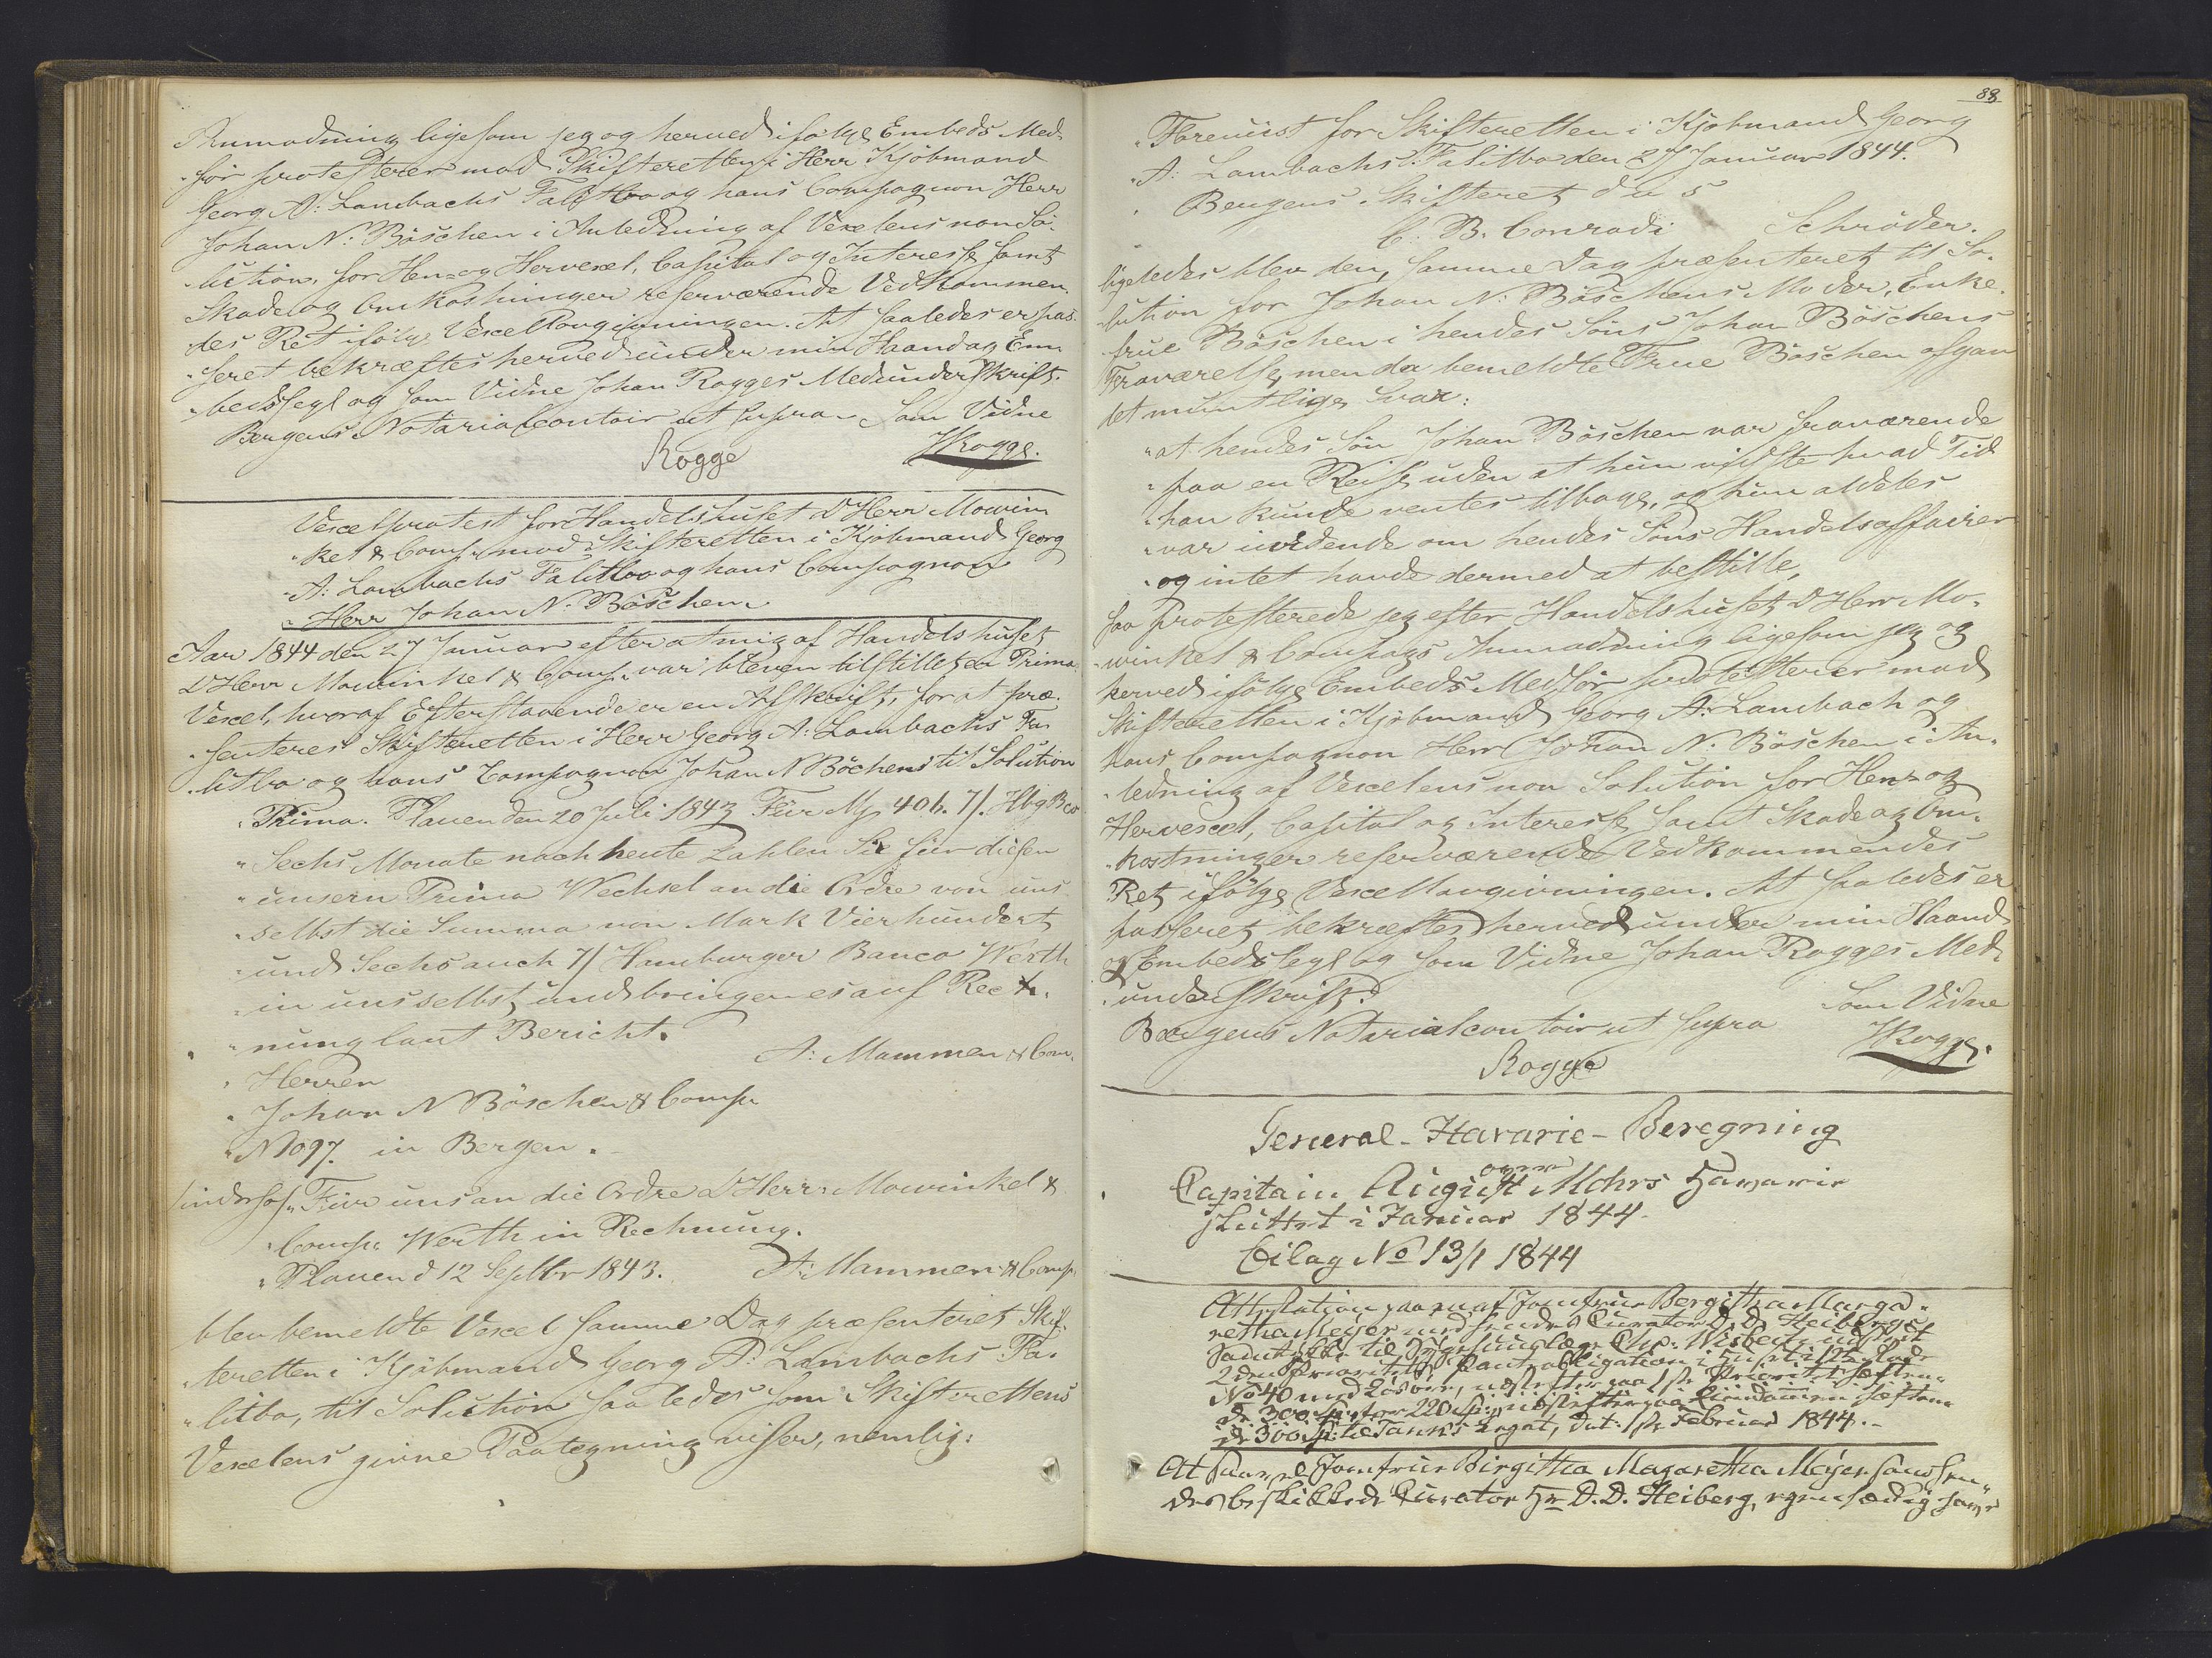 Anmodning ligesom jeg og herved ifølge Embeds Med-
"før protesterer mod Skifteretten i Herr Kjøbmand
Georg A: Lambachs Falitbo og hans Compagnon Herr
Johan N: Böschen i Anledning af Vexelens non So-
"lution, for Hen- og Hervexel, Capital og Interesse samt
Skade og Omkostninger reserverende Vedkommen-
des Ret ifølge Vexellovgivningen. At saaledes er pas-
"seret bekræftes herved under min Haand og Em-
"bedssegl og som Vidne Johan Rogges Medunderskrift.
Bergens Notarialcontoir ut supra. Som Vidne
Rogge JRogge.
Vexelprotest for Handelshuset D'Herr Mowin-
"kel & Comp. mod Skifteretten i Kjøbmand Georg
"A: Lambachs Falitbo og hans Compagnon
"Herr Johan N. Böschen.
Aar 1844 den 27 Januar efter at mig af Handelshuset
D'Herr Mowinkel & Comp. var bleven tilstillet en Prima
Vexel, hvoraf Efterstaaende er en Afskrift, for at præ-
"senteres Skifteretten i Herr Georg A: Lambachs Fa-
"litbo og hans Compagnon Johan N Böchens til Solution
"Prima. Plauen den 20 Juli 1843 Für Mf 406. 7/. Hbg Bco
"Sechs Monate nach heute zahlen Sie für diesen
"unsern Prima Wechsel an die Ordre von uns
"selbst die Summa von Mark Vierhundert
"und Sechs auch 7/ Hamburger Banco Werth
"in uns selbst, und bringen es auf Rech-
"nung laut Bericht.
A: Mammen & Com.
"Herren
"Johan N Böschen & Comp
"N 1097. in Bergen.
"Für uns an die Ordre D'Herr: Mowinkel &
"Comp. Werth in Rechnung.
"Plauen d 12 Septbr 1843. A: Mammen & Comp.
blev bemeldte Vexel samme Dag præsenteret Skif-
"teretten i Kjøbmand Georg A: Lambachs Fa-
"litbo, til Solution saaledes som Skifterettens
Vexelens givne Paategning viser, nemlig:
88
"Foreviist for Skifteretten i Kjøbmand Georg
"A: Lambachs Falitbo den 27 Januar 1844.
" Bergens Skifteret d u s
C. B. Conradi Schrøder.
ligeledes blev den, samme Dag præsenteret til So-
"lution for Johan N: Böschens Moder, Enke-
frue Böschen i hendes Søns Johan Böschens
Fraværelse, men da bemeldte Frue Böschen afgav
det mundtlige Svar:
"at hendes Søn Johan Böschen var fraværende
"paa en Reise uden at hun vidste hvad Tid
"han kunde ventes tilbage, og hun aldeles
"var uvidende om hendes Søns Handelsaffairer
"og intet havde dermed at bestille,
saa protesterede jeg efter Handelshuset D'Herr Mo-
"winkel & Compags Anmodning ligesom jeg og
herved ifølge Embeds Medfør protesterer mod
Skifteretten i Kjøbmand Georg A: Lambach og
hans Compagnon Herr Johan N. Böschen i An-
"ledning af Vexelens non Solution for Hen- og
Hervexel, Capital og Interesse samt Skade og Om-
"kostninger reserverende Vedkommendes
Ret ifølge Vexellovgivningen. At saaledes er
passeret, bekræftes herved under min Haand
og Embedssegl og som Vidne Johan Rogges Med-
"underskrift.
Bergens Notarialcontoir ut supra Som Vidne
Rogge JRogge.
General-Havarie-Beregning
over
Capitain August Mohrs Havarie
sluttet i Januar 1844.
Bilag No 13/1 1844
Attestation paa en af Jomfrue Bergitha Marga-
retha Meijer med hendes Curator D. D. Heibergs
Samtykke til
2den Prioritets Pantobligation
No 40 med Løsøre,
1ste Februar 1844.-
At Jomfrue Birgitha Magaretha Meijer
beskikkede Curator Hr D. D. Heiberg, egenhændig have